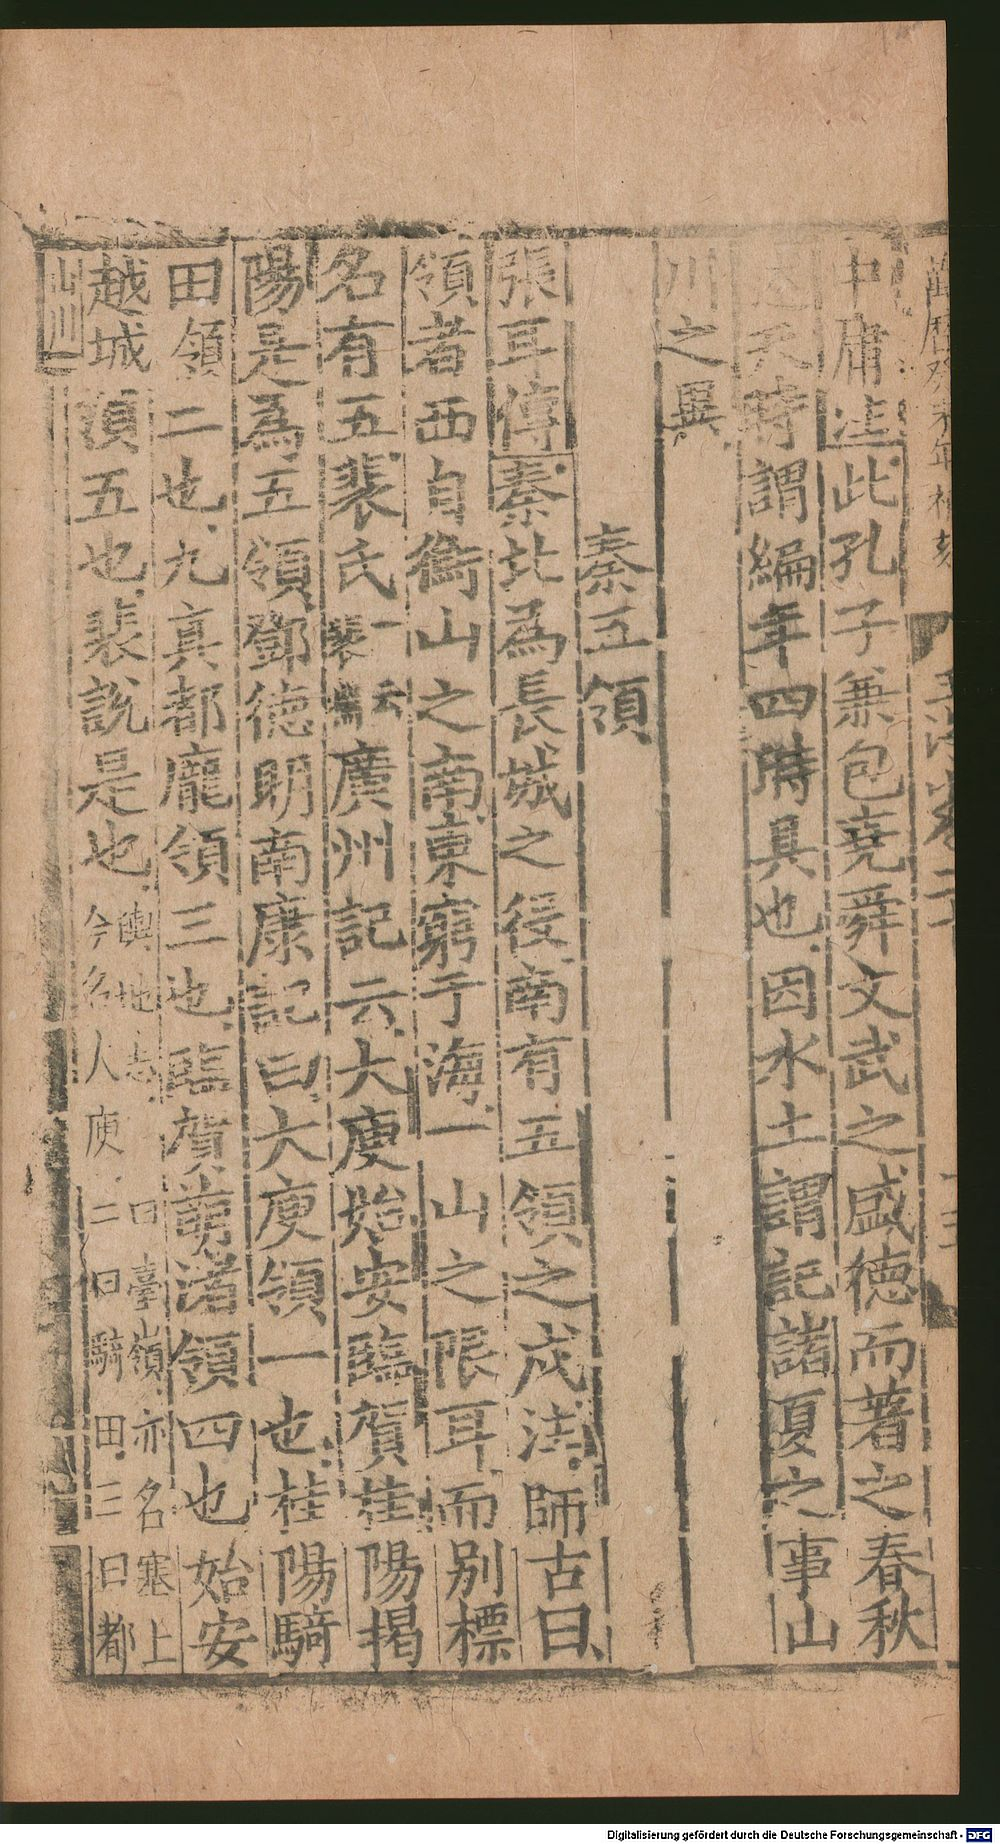 萬曆癸未年補刻
玉海卷二十
中庸注此孔子兼包堯舜文武之盛德而著之春秋
天時謂編年四時具也因水土謂記諸夏之事山
川之異
秦五領
張耳傳秦北為長城之役南有五領之戍注師古曰
領者西自衡山之南東窮于海一山之限耳而別標
名有五裴氏一裴淵云廣州記云大庾始安臨賀桂陽揭
陽是為五領鄧德明南康記曰大庾領一也桂陽騎
田領二也九真都龐領三也臨賀萌渚領四也始安
越城領五也裴說是也輿地志曰臺嶺亦名塞上
今名大庾二曰騎田三曰都
山川
Digitalisierung gefördert durch die Deutsche Forschungsgemeinschaft - DFG